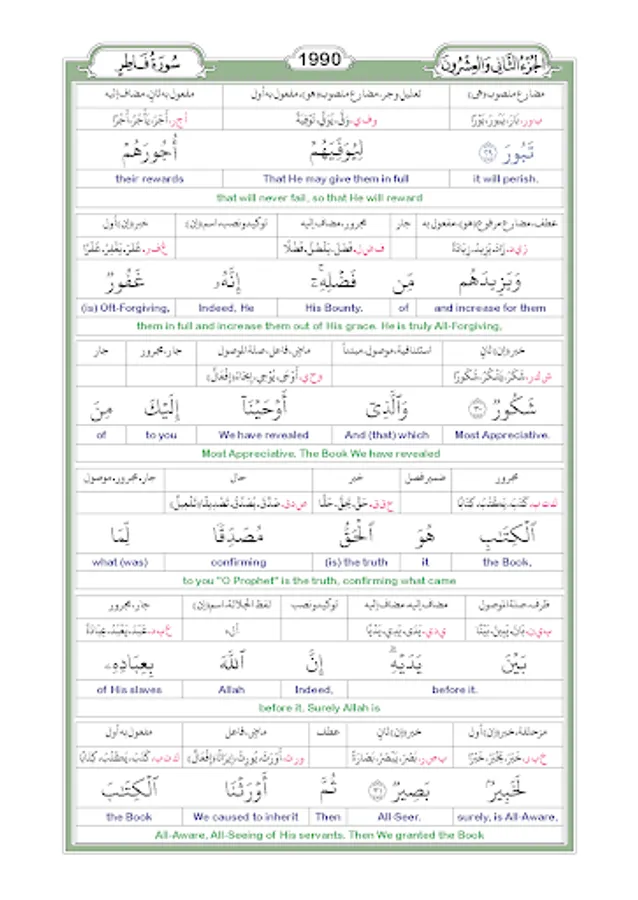 سُورَةُ فَاطِرٍ 1990 الجُزْءُ الثَّانِي وَالْعِشْرُونَ
مضارع منصوب (هي) تعليل وجر، مضارع منصوب (هو)، مفعول به أول مفعول به ثانٍ، مضاف إليه
ب و ر، بَارَ، يَبُورُ، بَوْرًا و ف ي، وَفَّى، يُوَفِّي، تَوْفِيَةً أ ج ر، أَجَرَ، يَأْجُرُ، أَجْرًا
تَبُورَ ٢٩ لِيُوَفِّيَهُمْ أُجُورَهُمْ
it will perish. That He may give them in full their rewards
that will never fail, so that He will reward
عطف، مضارع مرفوع (هو)، مفعول به جار مجرور، مضاف إليه توكيد ونصب، اسم (إن) خبر (إن) أول
ز ي د، زَادَ، يَزِيدُ، زِيَادَةً ف ض ل، فَضَلَ، يَفْضُلُ، فَضْلًا غ ف ر، غَفَرَ، يَغْفِرُ، غَفْرًا
وَيَزِيدَهُم مِّن فَضْلِهِۦٓ ۚ إِنَّهُۥ غَفُورٌ
and increase for them of His Bounty. Indeed, He (is) Oft-Forgiving,
them in full and increase them out of His grace. He is truly All-Forgiving,
خبر (إن) ثانٍ استئنافية، موصول، مبتدأ ماضٍ، فاعل، صلة الموصول جار، مجرور جار
ش ك ر، شَكَرَ، يَشْكُرُ، شُكُورًا و ح ي، أَوْحَى، يُوْحِي، إِيحَاءً (إِفْعَالٌ)
شَكُورٌ ٣٠ وَٱلَّذِىٓ أَوْحَيْنَآ إِلَيْكَ مِنَ
Most Appreciative. And (that) which We have revealed to you of
Most Appreciative. The Book We have revealed
مجرور ضمير فصل خبر حال جار، مجرور، موصول
ك ت ب، كَتَبَ، يَكْتُبُ، كِتَابًا ح ق ق، حَقَّ، يَحِقُّ، حَقًّا ص د ق، صَدَّقَ، يُصَدِّقُ، تَصْدِيقًا (تَفْعِيلٌ)
ٱلْكِتَٰبِ هُوَ ٱلْحَقُّ مُصَدِّقًا لِّمَا
the Book, it (is) the truth confirming what (was)
to you "O Prophet" is the truth, confirming what came
ظرف، صلة الموصول مضاف إليه، مضاف إليه توكيد ونصب لفظ الجلالة، اسم (إن) جار، مجرور
ب ي ن، بَانَ، يَبِينُ، بَيْنًا ي د ي، يَدَى، يَدِي، يَدْيًا أ ل ه ع ب د، عَبَدَ، يَعْبُدُ، عِبَادَةً
بَيْنَ يَدَيْهِ ۗ إِنَّ ٱللَّهَ بِعِبَادِهِۦ
before it. Indeed, Allah of His slaves
before it. Surely Allah is
مزحلقة، خبر (إن) أول خبر (إن) ثانٍ عطف ماضٍ، فاعل مفعول به أول
خ ب ر، خَبَرَ، يَخْبُرُ، خَبْرًا ب ص ر، بَصُرَ، يَبْصُرُ، بَصَارَةً و ر ث، أَوْرَثَ، يُورِثُ، إِيرَاثًا (إِفْعَالٌ) ك ت ب، كَتَبَ، يَكْتُبُ، كِتَابًا
لَخَبِيرٌۢ بَصِيرٌ ٣١ ثُمَّ أَوْرَثْنَا ٱلْكِتَٰبَ
surely, is All-Aware, All-Seer. Then We caused to inherit the Book
All-Aware, All-Seeing of His servants. Then We granted the Book